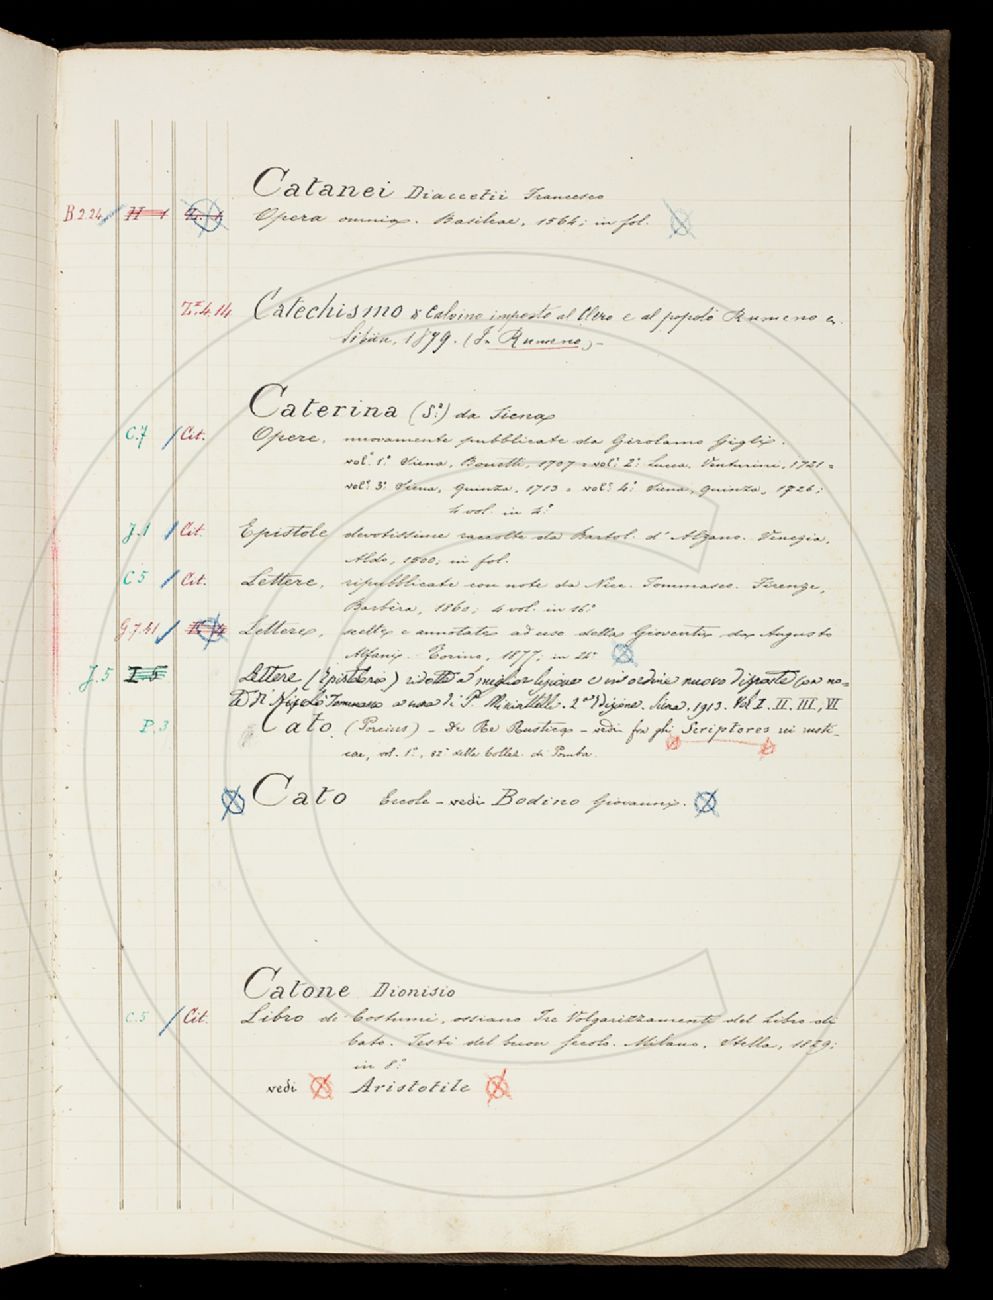 Catanei Diaccetii Francesco
B 2.24 H 1 Z. 1 Opera omnia. Basileae, 1564; in fol.
Z.4.14 Catechismo di Calvino imposto al Clero e al popolo Rumeno
Sibiiu, 1879. (In Rumeno) -
Caterina (Sª.) da Siena
C.7 / Cit. Opere, nuovamente pubblicate da Girolamo Gigli.
vol. 1º. Siena, Bonetti, 1707 = vol. 2º. Lucca, Venturini, 1721 =
vol. 3º. Siena, Quinza, 1713 = vol. 4º. Siena, Quinza, 1726;
4 vol. in 4.º
J.1 / Cit. Epistole devotissime raccolte da Bartol. d'Alzano. Venezia,
Aldo, 1500; in fol.
C 5 / Cit. Lettere, ripubblicate con note da Nicc. Tommaseo. Firenze,
Barbèra, 1860; 4 vol. in 16.º
G.7.41 / Lettere, scelte e annotate ad uso della Gioventù da Augusto
Alfani. Torino, 1877; in 24º
J.5 I-5 Lettere (Epistolario) ridotte a miglior lezione e in ordine nuovo disposte con no=
te di Nicolò Tommaseo a cura di P. Misciattelli. 2ª Edizione. Siena. 1913. Vol. I. II. III, VI
P.3 Cato (Porcius) - De Re Rustica - vedi fra gli Scriptores rei rusti-
cae, vol. 1º, della Collez. di Pomba.
Cato Ercole - vedi Bodino Giovanni.
Catone Dionisio
C.5 / Cit. Libro de' Costumi, ossiano Tre Volgarizzamenti del Libro di
Cato. Testi del buon secolo. Milano, Stella, 1829;
in 8º
vedi Aristotile